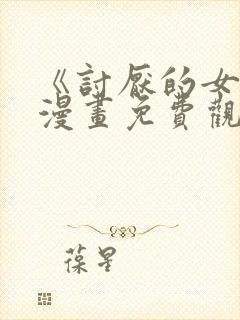 《討厭的女
漫畫免費觀
葆星